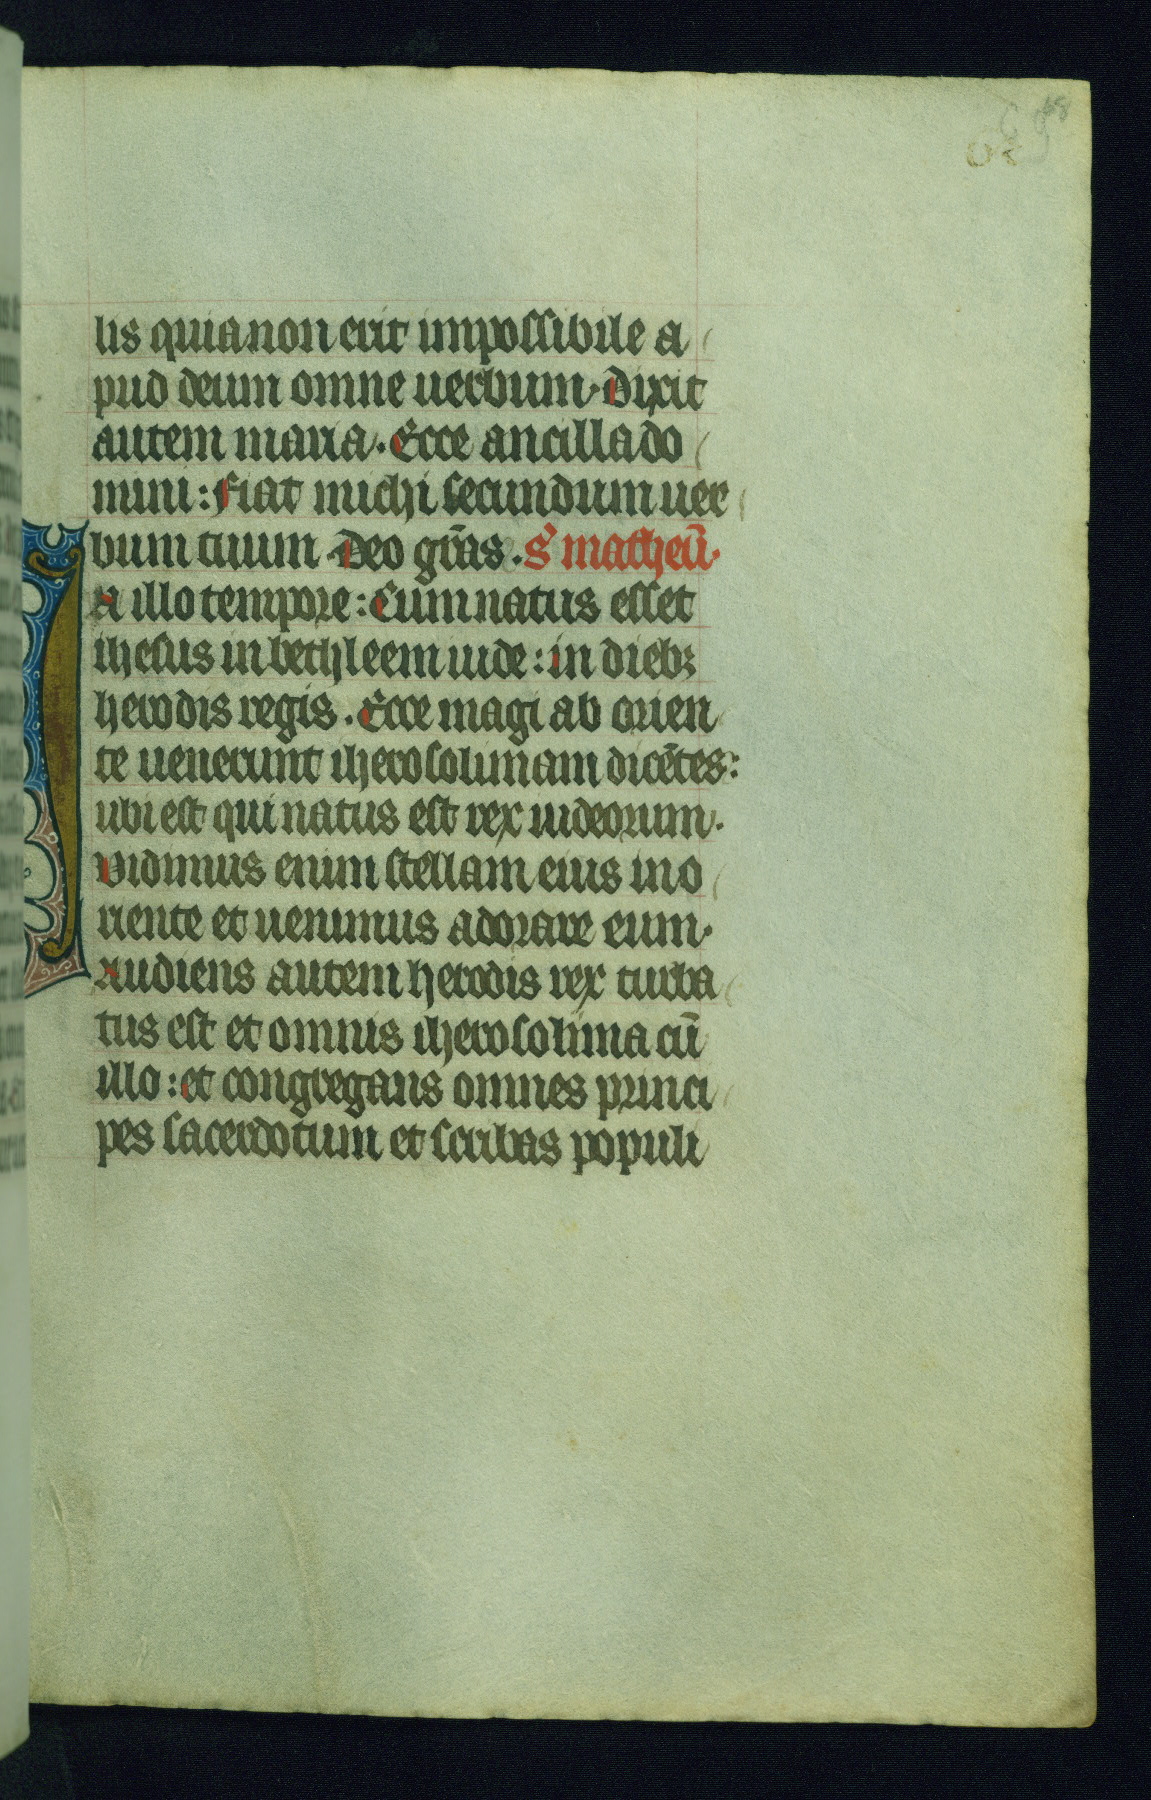 lis quia non erit impossibile a
pud deum omne uerbum. Dixit
autem maria. Ecce ancilla do
mini: fiat michi secundum uer
bum tuum. Deo gr̄as. S' matheū.
N illo tempore: Cum natus esset
ihesus in bethleem iude: in diebꝫ
herodis regis. Ecce magi ab orien
te uenerunt iherosolimam dicētes:
ubi est qui natus est rex iudeorum.
Vidimus enim stellam eius in o
riente et uenimus adorare eum.
Audiens autem herodis rex turba
tus est et omnis iherosolima cū
illo: et congregans omnes princi
pes sacerdotum et scribas populi